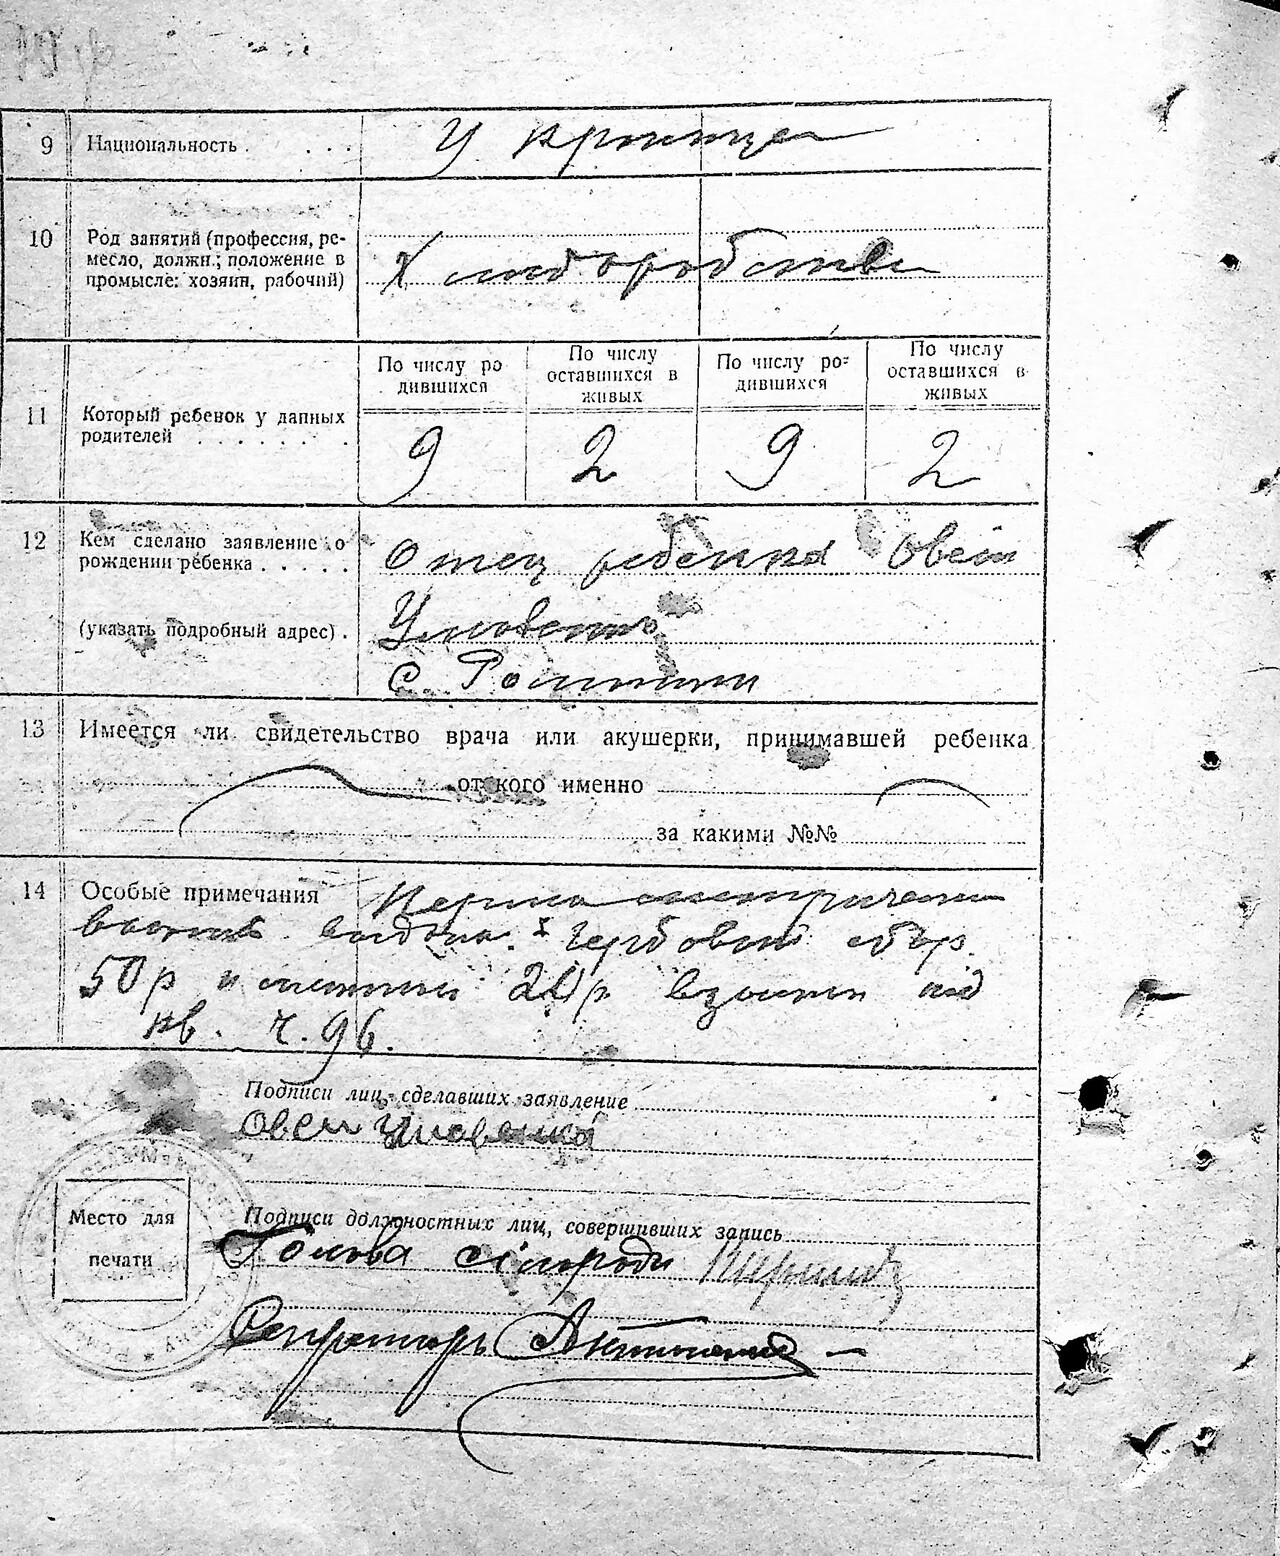 9 Национальность . . . . У кроинца
10 Род занятий (профессия, ре-
месло, должн.; положение в
промысле: хозяин, рабочий)
Хлибородство
11 Который ребенок у данных
родителей . . . . . . .
По числу ро
дившихся
По числу
оставшихся в
живых
По числу ро-
дившихся
По числу
оставшихся в
живых
9 2 9 2
12 Кем сделано заявление о
рождении ребенка . . . . .
Отец ребенка Овсій
(указать подробный адрес) .
С.
13 Имеется ли свидетельство врача или акушерки, принимавшей ребенка
от кого именно
за какими №№
14 Особые примечания
гербовый сбор
50р и 20р взыскан по
кв. ч. 96.
Подписи лиц, сделавших заявление
Овсий
Место для
печати
Подписи должностных лиц, совершивших запись
Голова сілроди
Секретарь